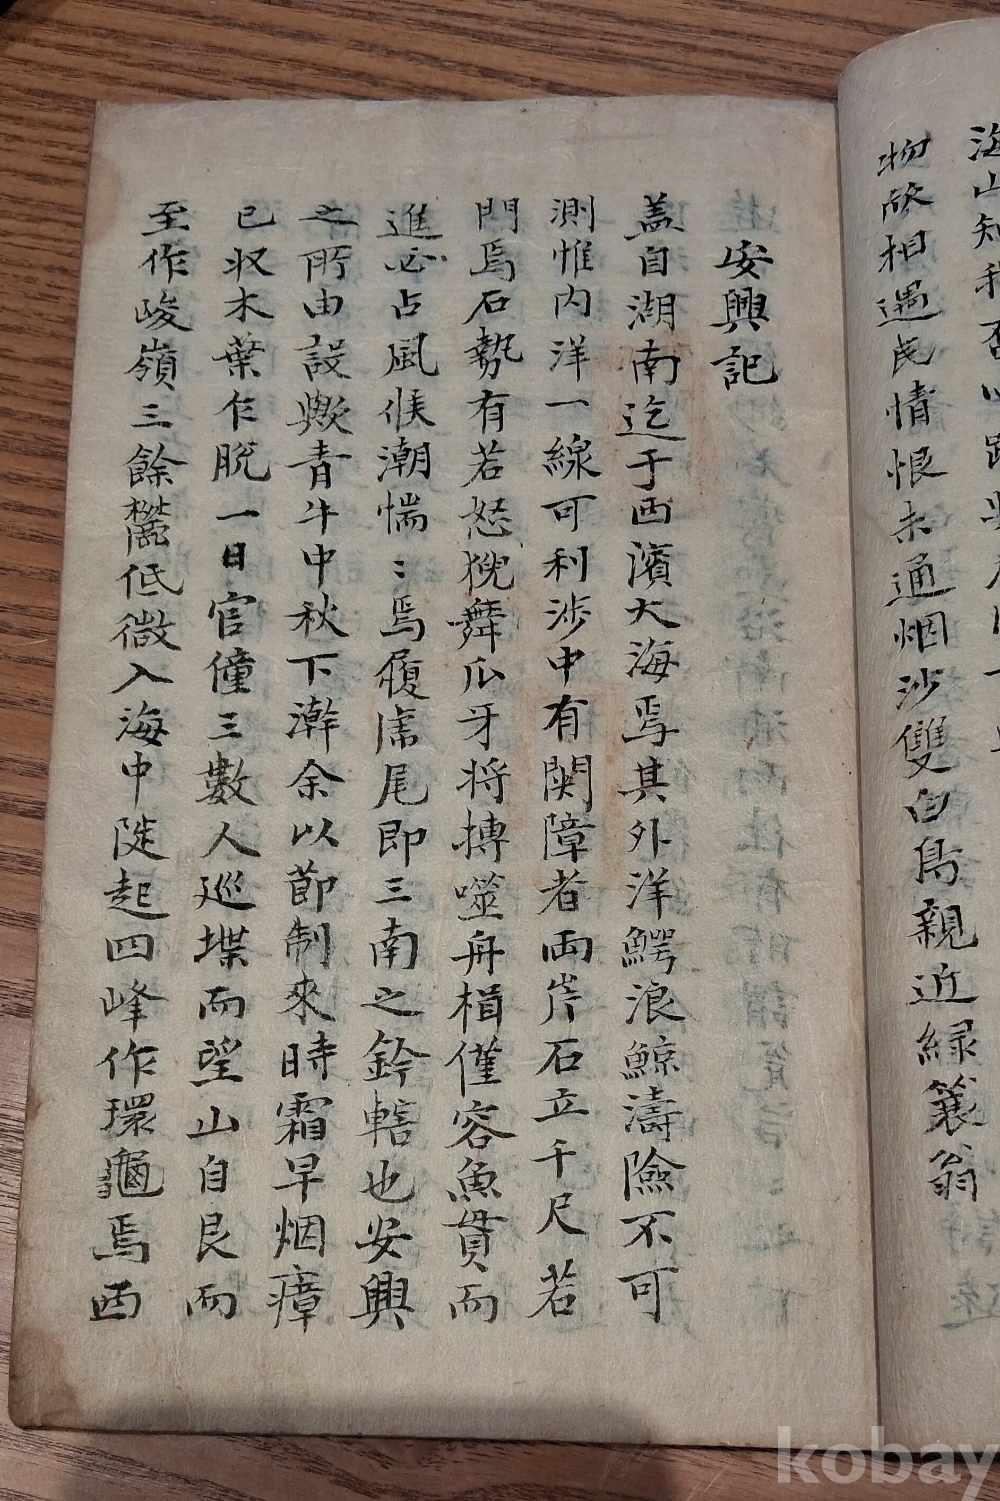 海山知我否
物欣相遇民情恨未通烟沙雙白鳥親近緑蓑翁
安興記
盖自湖南迄于西濱大海焉其外洋鰐浪鯨濤險不可
測惟内洋一線可利涉中有関障者両岸石立千尺若
門焉石勢有若怒猊舞瓜牙将搏噬舟楫僅容魚貫而
進必占風候潮惴〻焉履虎尾即三南之鈐轄也安興
之所由設歟青牛中秋下澣余以節制來時霜早烟瘴
已収木葉乍脱一日官僮三數人巡堞而望山自艮而
至作峻嶺三餘鬱低微入海中陡起四峰作環龜焉西
kobay